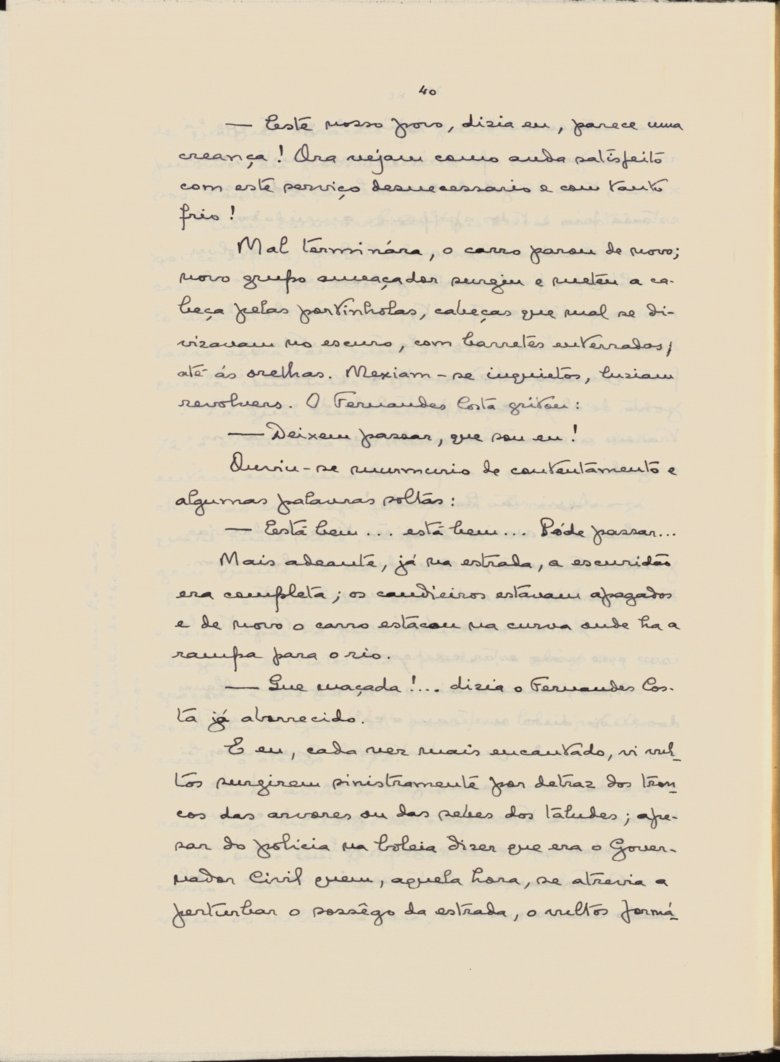 40
— Este nosso povo, dizia eu, parece uma
creança! Ora vejam como anda satisfeito
com este serviço desnecessario e com tanto
frio!
Mal terminára, o carro parou de novo;
novo grupo ameaçador surgiu e meteu a ca-
beça pelas portinholas, cabeças que mal se di-
vizavam no escuro, com barretes enterrados,
até ás orelhas. Mexiam-se inquietos, luziam
revolvers. O Fernandes Costa gritou:
— Deixem passar, que sou eu!
Ouviu-se murmurio de contentamento e
algumas palavras soltas:
— Está bem... está bem... Póde passar...
Mais adeante, já na estrada, a escuridão
era completa; os candieiros estavam apagados
e de novo o carro estacou na curva onde ha a
rampa para o rio.
— Que maçada!... dizia o Fernandes Cos-
ta já aborrecido.
E eu, cada vez mais encantado, vi vul-
tos surgirem sinistramente por detraz dos tron-
cos das arvores ou das sebes dos taludes; ape-
sar do policia na boleia dizer que era o Gover-
nador Civil quem, aquela hora, se atrevia a
perturbar o sossêgo da estrada, o vultos formá-